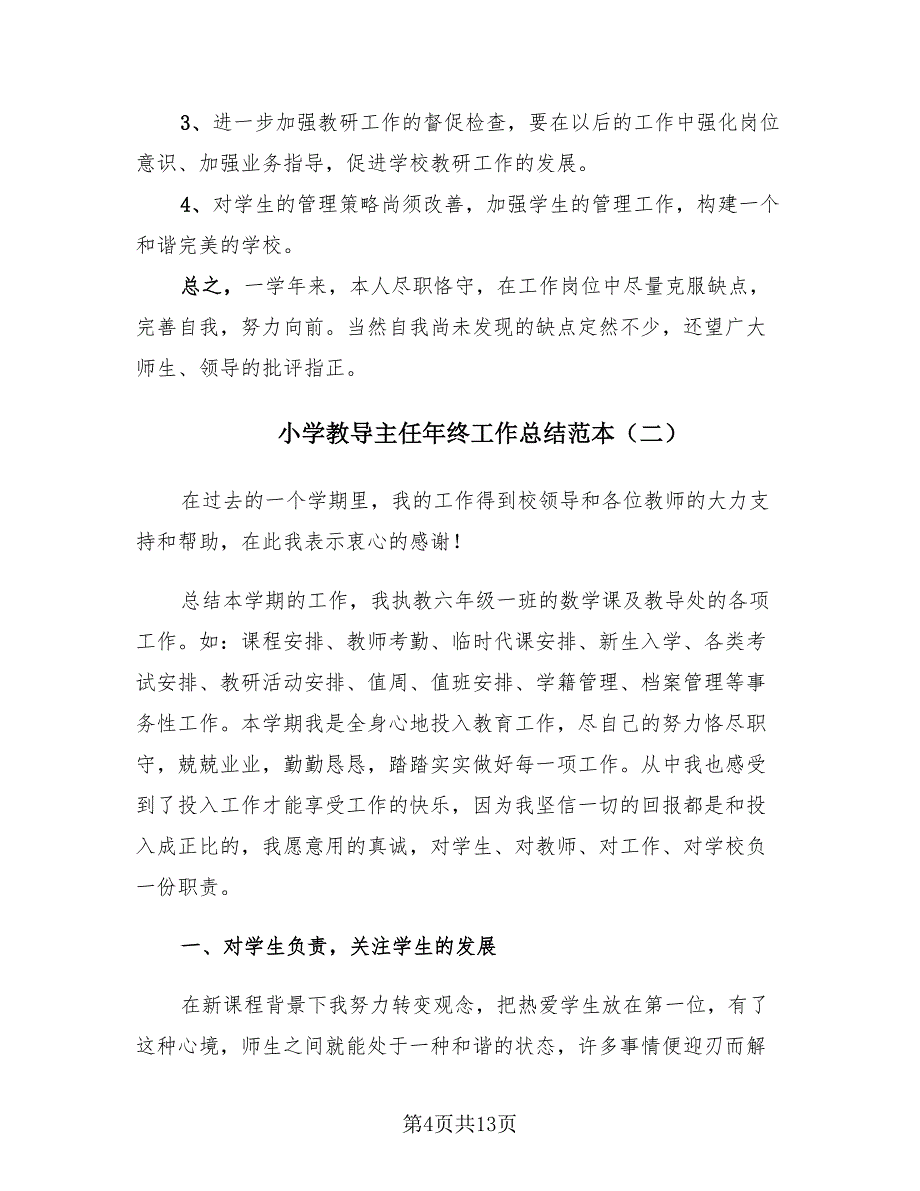 3、进一步加强教研工作的督促检查，要在以后的工作中强化岗位
意识、加强业务指导，促进学校教研工作的发展。
4、对学生的管理策略尚须改善，加强学生的管理工作，构建一个
和谐完美的学校。
总之，一学年来，本人尽职恪守，在工作岗位中尽量克服缺点，
完善自我，努力向前。当然自我尚未发现的缺点定然不少，还望广大
师生、领导的批评指正。
小学教导主任年终工作总结范本（二）
在过去的一个学期里，我的工作得到校领导和各位教师的大力支
持和帮助，在此我表示衷心的感谢！
总结本学期的工作，我执教六年级一班的数学课及教导处的各项
工作。如：课程安排、教师考勤、临时代课安排、新生入学、各类考
试安排、教研活动安排、值周、值班安排、学籍管理、档案管理等事
务性工作。本学期我是全身心地投入教育工作，尽自己的努力恪尽职
守，兢兢业业，勤勤恳恳，踏踏实实做好每一项工作。从中我也感受
到了投入工作才能享受工作的快乐，因为我坚信一切的回报都是和投
入成正比的，我愿意用的真诚，对学生、对教师、对工作、对学校负
一份职责。
一、对学生负责，关注学生的发展
在新课程背景下我努力转变观念，把热爱学生放在第一位，有了
这种心境，师生之间就能处于一种和谐的状态，许多事情便迎刃而解
第4页共13页